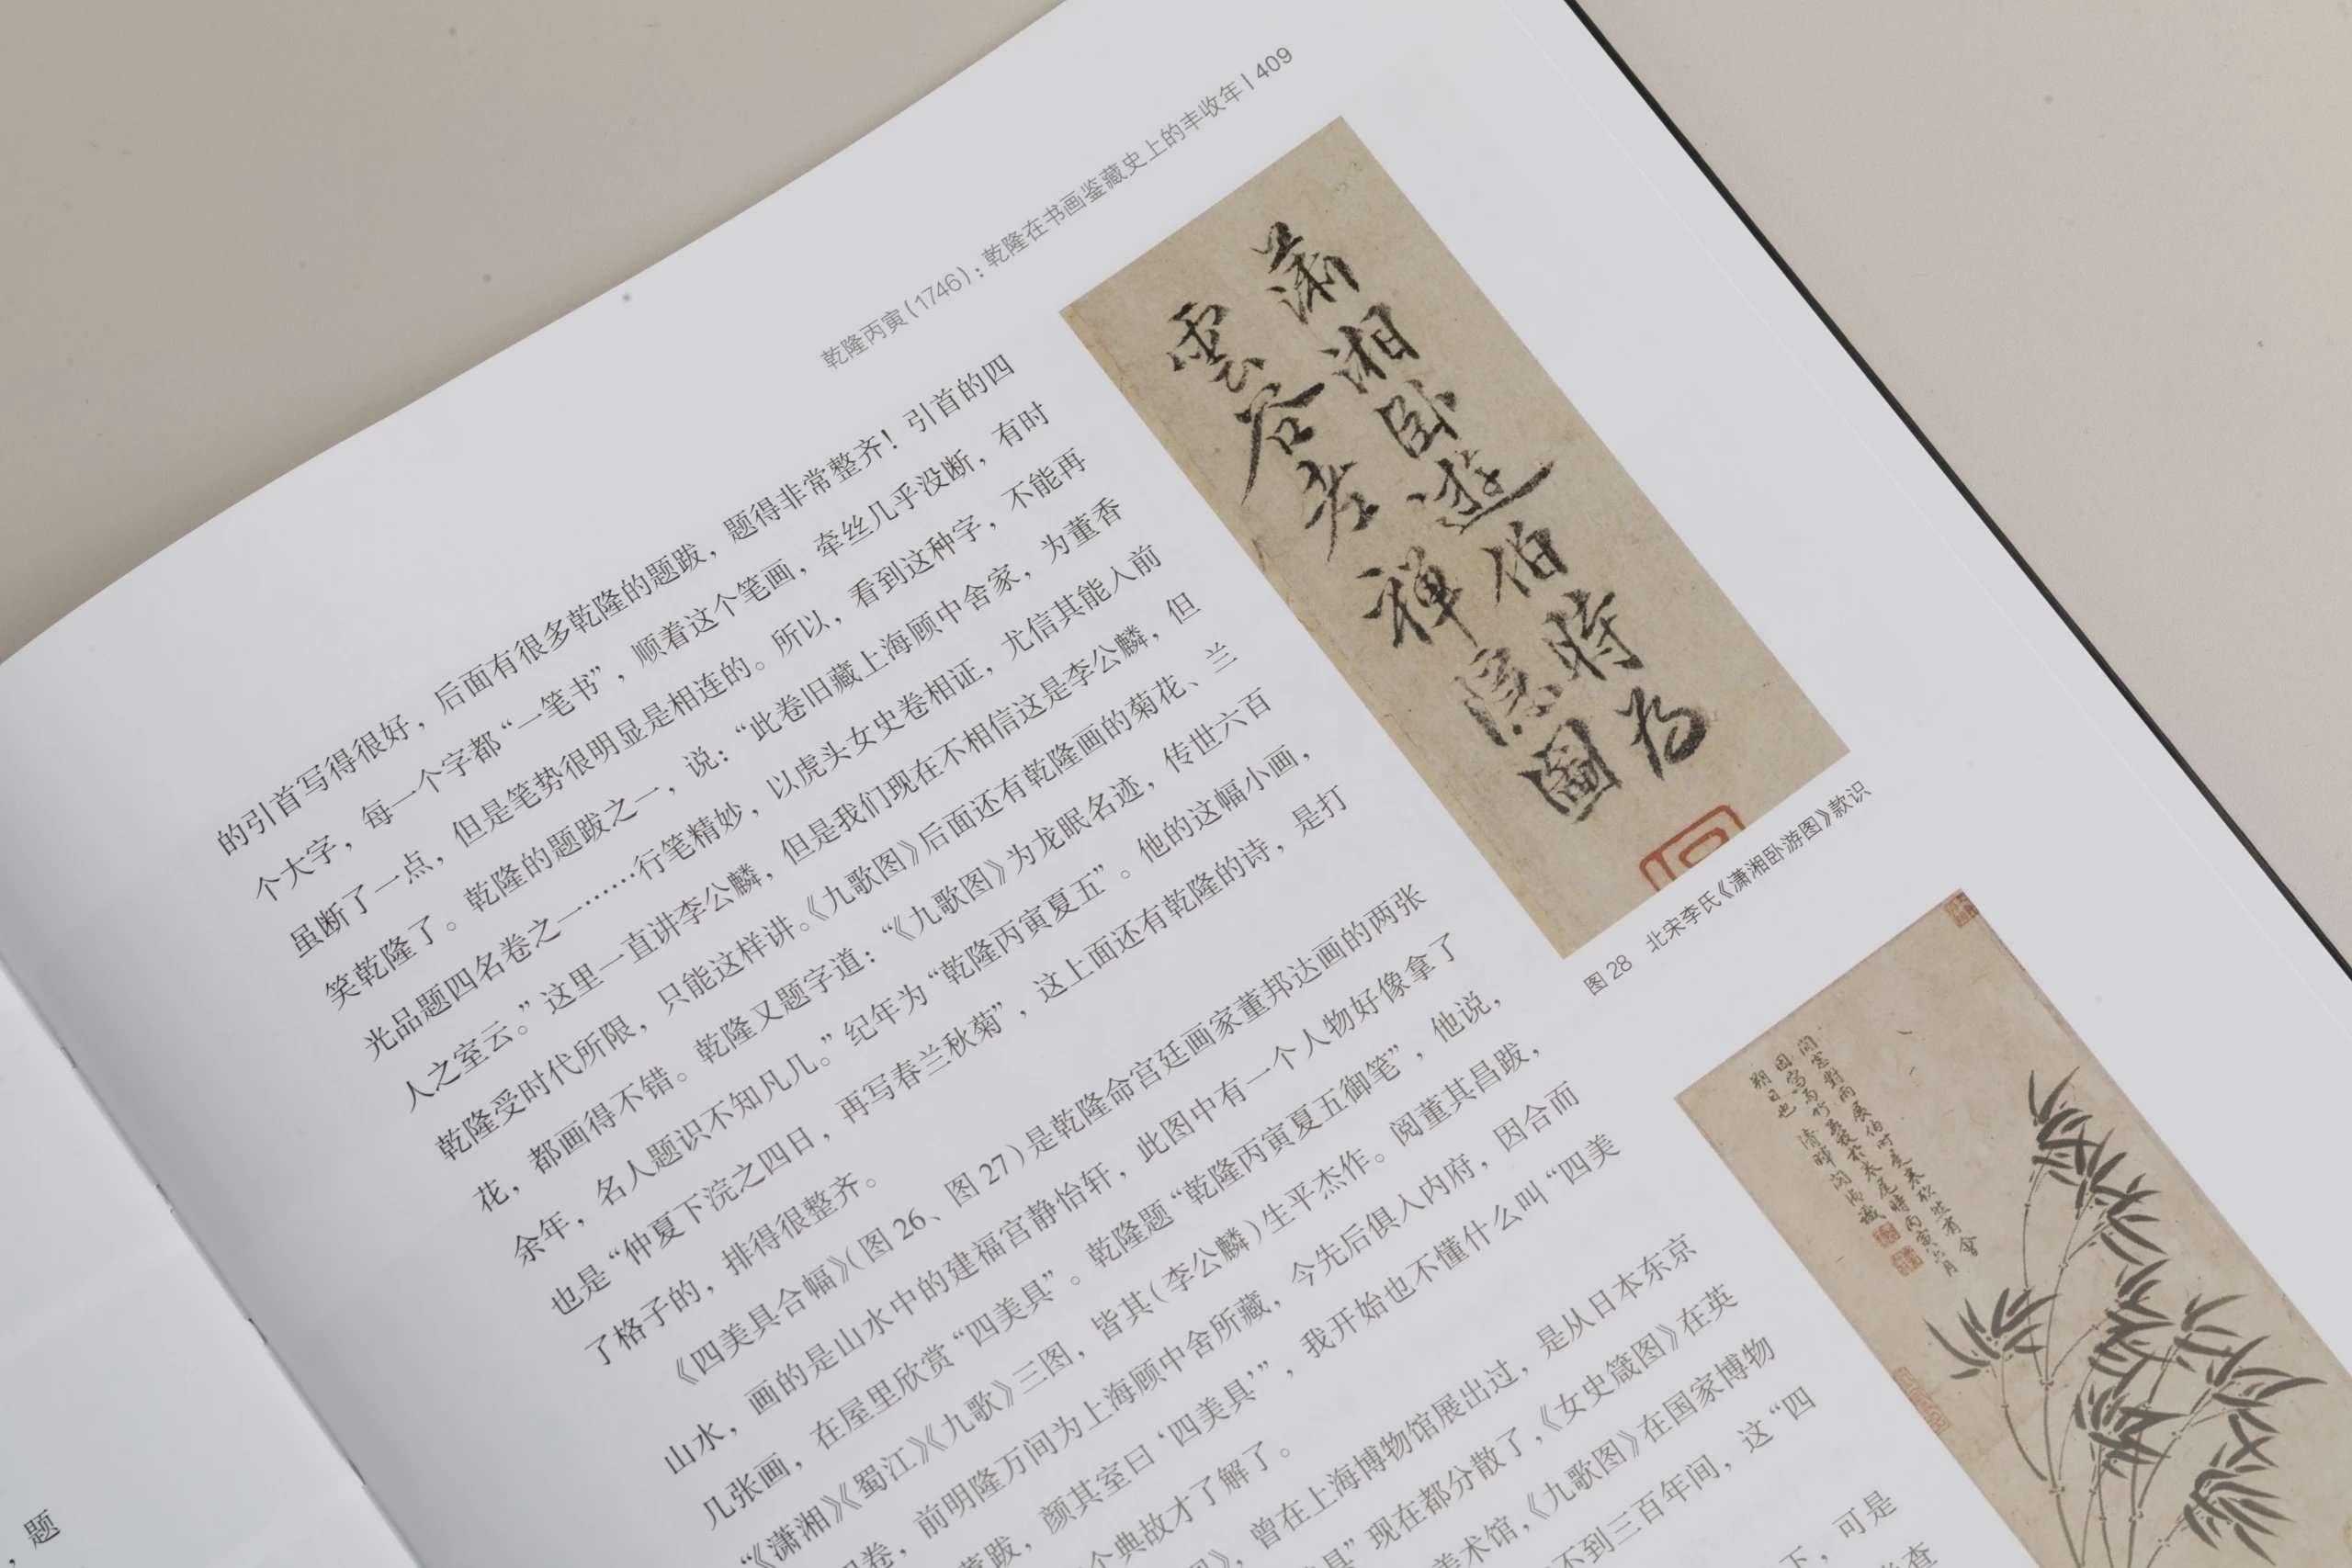 乾隆丙寅(1746):乾隆在书画鉴藏史上的丰收年 | 409
的引首写得很好,后面有很多乾隆的题跋,题得非常整齐!引首的四
个大字,每一个字都“一笔书”,顺着这个笔画,牵丝几乎没断,有时
虽断了一点,但是笔势很明显是相连的。所以,看到这种字,不能再
笑乾隆了。乾隆的题跋之一,说:“此卷旧藏上海顾中舍家,为董香
光品题四名卷之一……行笔精妙,以虎头女史卷相证,尤信其能入前
人之室云。”这里一直讲李公麟,但是我们现在不相信这是李公麟,但
乾隆受时代所限,只能这样讲。《九歌图》后面还有乾隆画的菊花、兰
花,都画得不错。乾隆又题字道:“《九歌图》为龙眠名迹,传世六百
余年,名人题识不知凡几。”纪年为“乾隆丙寅夏五”。他的这幅小画,
也是“仲夏下浣之四日,再写春兰秋菊”,这上面还有乾隆的诗,是打
了格子的,排得很整齐。
《四美具合幅》(图 26、图 27)是乾隆命宫廷画家董邦达画的两张
山水,画的是山水中的建福宫静怡轩,此图中有一个人物好像拿了
几张画,在屋里欣赏“四美具”。乾隆题“乾隆丙寅夏五御笔”,他说,
“《潇湘》《蜀江》《九歌》三图,皆其(李公麟)生平杰作。阅董其昌跋,
卷,前明隆万间为上海顾中舍所藏,今先后俱入内府,因合而
董跋,颜其室曰‘四美具’”,我开始也不懂什么叫“四美
个典故才了解了。
》,曾在上海博物馆展出过,是从日本东京
具”现在都分散了,《女史箴图》在英
美术馆,《九歌图》在国家博物
不到三百年间,这“四
下,可是
查
潇湘卧遊伯時为
雲谷老禅隐圖
图 28 北宋李氏《潇湘卧游图》款识
,题